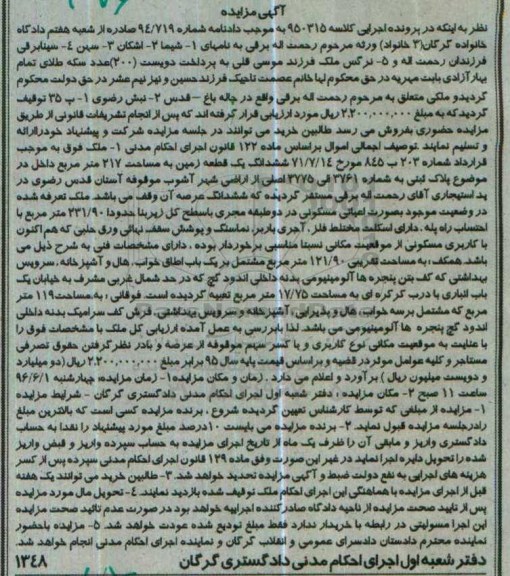 آگهی مزایده
نظر به اینکه در پرونده اجرایی کلاسه ۹۵۰۳۱۵ به موجب دادنامه شماره ۹۴/۷۱۹ صادره از شعبه هفتم دادگاه
خانواده گرگان(۳ خانواد) ورثه مرحوم رحمت اله برقی به نامهای ۱- شیما ۲- اشکان ۳- سپن ۴- سینابرقی
فرزندان رحمت اله و ۵- نرگس ملک فرزند موسی قلی به پرداخت دویست (۲۰۰)عدد سکه طلای تمام
بهار آزادی بابت مهریه در حق محکوم لها خانم عصمت تاجیک فرزند حسین و نیز نیم عشر در حق دولت محکوم
گردیدو ملکی متعلق به مرحوم رحمت اله برقی واقع در چاله باغ – قدس ۲- نبش رضوی ۱- پ ۳۵ توقیف
گردید که به مبلغ ۲.۲۰۰.۰۰۰.۰۰۰ ریال مورد ارزیابی قرار گرفته اند که پس از انجام تشریفات قانونی از طریق
مزایده حضوری بفروش می رسد طالبین خرید می توانند در جلسه مزایده شرکت و پیشنهاد خودرا ارائه
و تسلیم نمایند .توصیف اجمالی اموال براساس ماده ۱۲۲ قانون اجرای احکام مدنی ۱- ملک فوق به موجب
قرارداد شماره ۲۰۳ ب ۸۴۵ مورخ ۷۱/۷/۱۴ ششدانگ یک قطعه زمین به مساحت ۲۱۷ متر مربع داخل در
موضوع پلاک ثبتی به شماره ۳۷۶۱ الی ۳۷۷۵ اصلی از اراضی شهر آشوب موقوفه آستان قدس رضوی در
ید استیجاری آقای رحمت اله برقی مستقر گردیده که ششدانگ عرصه آن وقف می باشد. ملک تعرفه شده
در وضعیت موجود بصورت اعیانی مسکونی در دوطبقه مجری باسطح کل زیربنا حدودا ۲۳۱/۹۰ متر مربع با
احتساب راه پله ، دارای اسکلت مختلط فلز ، آجری باربر ، نماسنگ و پوشش سقف نهائی ورق حلبی که هم اکنون
با کاربری مسکونی از موقعیت مکانی نسبتا مناسبی برخوردار بوده ، دارای مشخصات فنی به شرح ذیل می
باشد. همکف : به مساحت تقریبی ۱۲۱/۹۰ متر مربع مشتمل بر یک باب اطاق خواب ،هال و آشپزخانه ، سرویس
بهداشتی که کف بتن پنجره ها آلومینیومی بدنه داخلی اندود گچ که در حد شمال غربی مشرف به خیابان یک
باب انباری با درب کرکره ای به مساحت ۱۷/۷۵ متر مربع تعبیه گردیده است. فوقانی : به مساحت ۱۱۹ متر
مربع که مشتمل بر سه خواب ،هال و پذیرایی ، آشپزخانه و سرویس بهداشتی، فرش کف سرامیک بدنه داخلی
اندود گچ پنجره ها آلومینیومی می باشد. لذا بابررسی به عمل آمده ارزیابی کل ملک با مشخصات فوق را
با عنایت به موقعیت مکانی نوع کاربری و با کسر سهم موقوفه از عرصه و بادر نظر گرفتن حقوق تصرفی
مستاجر و کلیه عوامل موثر در قضیه و براساس قیمت پایه سال ۹۵ برابر مبلغ ۲.۲۰۰.۰۰۰.۰۰۰ ریال (دو میلیارد
و دویست میلیون ریال ) برآورد و اعلام می دارد . زمان و مکان مزایده۱- زمان مزایده، چهارشنبه ۹۶/۶/۱
ساعت ۱۱ صبح ۲- مکان مزایده : دفتر شعبه اول اجرای احکام مدنی دادگستری گرگان – شرایط مزایده
۱- مزایده از مبلغی که توسط کارشناس تعیین گردیده شروع ، برنده مزایده کسی است که بالاترین مبلغ
رادرجلسه مزایده قبول نماید. ۲- برنده مزایده می بایست ۱۰درصد مبلغ مورد پیشنهاد را نقدا به حساب
دادگستری واریز و مابقی آن را ظرف یک ماه از تاریخ اجرای مزایده به حساب سپرده واریز و قبض واریز
شده را تحویل دایره اجرا نماید در غیر این صورت وفق ماده ۱۲۹ قانون اجرای احکام مدنی سپرده پس از کسر
هزینه های اجرایی به نفع دولت ضبط و آگهی مزایده تجدید خواهد شد. ۳- طالبین خرید می توانند یک هفته
قبل از اجرای مزایده با هماهنگی این اجرای احکام ملک توقیف شده بازدید نمایند. ۴- تحویل مال مورد مزایده
پس از تایید صحت مزایده از ناحیه دادگاه صادر کننده اجراییه خواهد بود در صورت عدم تائید صحت مزایده
این اجرا مسولیتی در رابطه با خریدار ندارد فقط مبلغ تودیع شده عودت خواهد شد. ۵- مزایده باحضور
نماینده محترم دادستان دادسرای عمومی و انقلاب گرگان و نماینده اجرای احکام مدنی انجام خواهد شد.
دفتر شعبه اول اجرای احکام مدنی دادگستری گرگان ۱۳۴۸